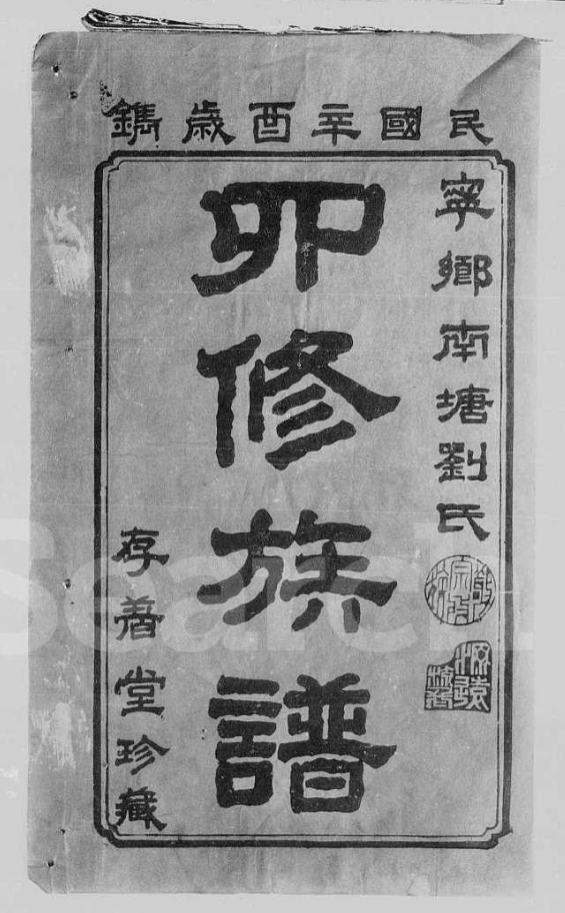 民國辛酉歲鐫
寧鄉南塘劉氏
四修族譜
存著堂珍藏
Search